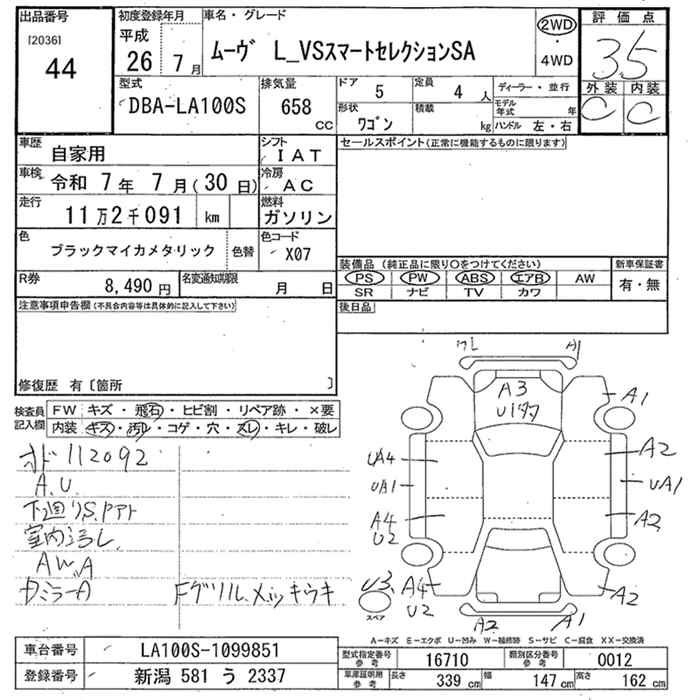 出品番号
[2036]
44
初度登録年月
平成
26 年 7 月
車名・グレード
ムーヴ L_VSスマートセレクションSA
2WD
4WD
評価点
3.5
外装 内装
C C
型式
DBA-LA100S
排気量
658 cc
ドア 5
定員 4 人
形状 ワゴン
積載 kg
ディーラー・並行
モデル年式 年
ハンドル 左・右
車歴 自家用
シフト IAT
セールスポイント(正常に機能するものに限ります)
車検 令和 7年 7月(30日)
冷房 AC
走行 11万2千091 km
燃料 ガソリン
色 ブラックマイカメタリック 色替
色コード X07
装備品(純正品に限り○をつけてください)
新車保証書
PS PW ABS エアB AW
有・無
SR ナビ TV カワ
R券 8,490円
名変通知期限 月 日
後日品
注意事項申告欄(不具合内容等は具体的に記入して下さい)
修復歴 有〔箇所 〕
検査員記入欄
FW キズ・飛石・ヒビ割・リペア跡・×要
内装 キズ・汚れ・コゲ・穴・スレ・キレ・破レ
オド112092
A.U.
下廻りS.
室内汚レ
AW.A
ミラーA
Fグリルメッキウキ
A1
A3
U1
A1
UA4
A2
UA1
UA1
A4
U2
A2
U3
A4
U2
A2
A2
A1
スペア
A-キズ E-エクボ U-凹み W-補修跡 S-サビ C-腐食 XX-交換済
車台番号 LA100S-1099851
型式指定番号 参考 16710
類別区分番号 参考 0012
登録番号 新潟 581 う 2337
車庫証明用 参考 長さ 339 cm 幅 147 cm 高さ 162 cm